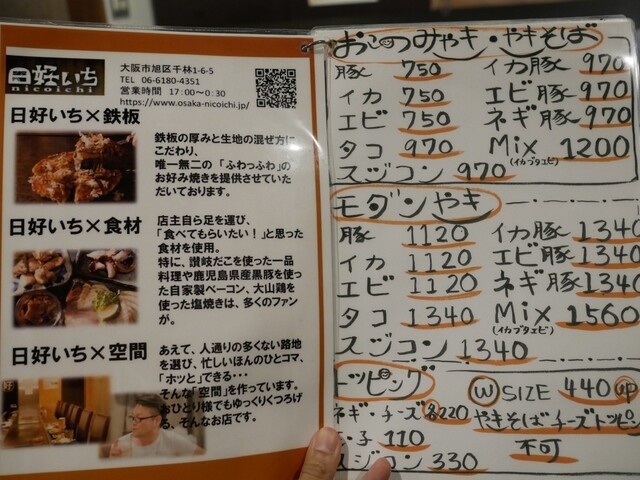 日好いち
nicoichi
大阪市旭区千林1-6-5
TEL 06-6180-4351
営業時間 17:00〜0:30
https://www.osaka-nicoichi.jp/
日好いち×鉄板
鉄板の厚みと生地の混ぜ方に
こだわり、
唯一無二の「ふわっふわ」の
お好み焼きを提供させていた
だいております。
日好いち×食材
店主自ら足を運び、
「食べてもらいたい!」と思った
食材を使用。
特に、讃岐だこを使った一品
料理や鹿児島県産黒豚を使っ
た自家製ベーコン、大山鶏を
使った塩焼きは、多くのファン
が。
日好いち×空間
あえて、人通りの多くない路地
を選び、忙しいほんのひとコマ、
「ホッと」できる・・・
そんな「空間」を作っています。
おひとり様でもゆっくりくつろげ
る、そんなお店です。
おこのみやき・やきそば
豚 750 イカ豚 970
イカ 750 エビ豚 970
エビ 750 ネギ豚 970
タコ 970 Mix 1200
(イカブタエビ)
スジコン 970
モダンやき
豚 1120 イカ豚 1340
イカ 1120 エビ豚 1340
エビ 1120 ネギ豚 1340
タコ 1340 Mix 1560
(イカブタエビ)
スジコン 1340
トッピング
W SIZE 440
ネギ・チーズ 各220 やきそばチーズトッピン
子 110 不可
スジコン 330